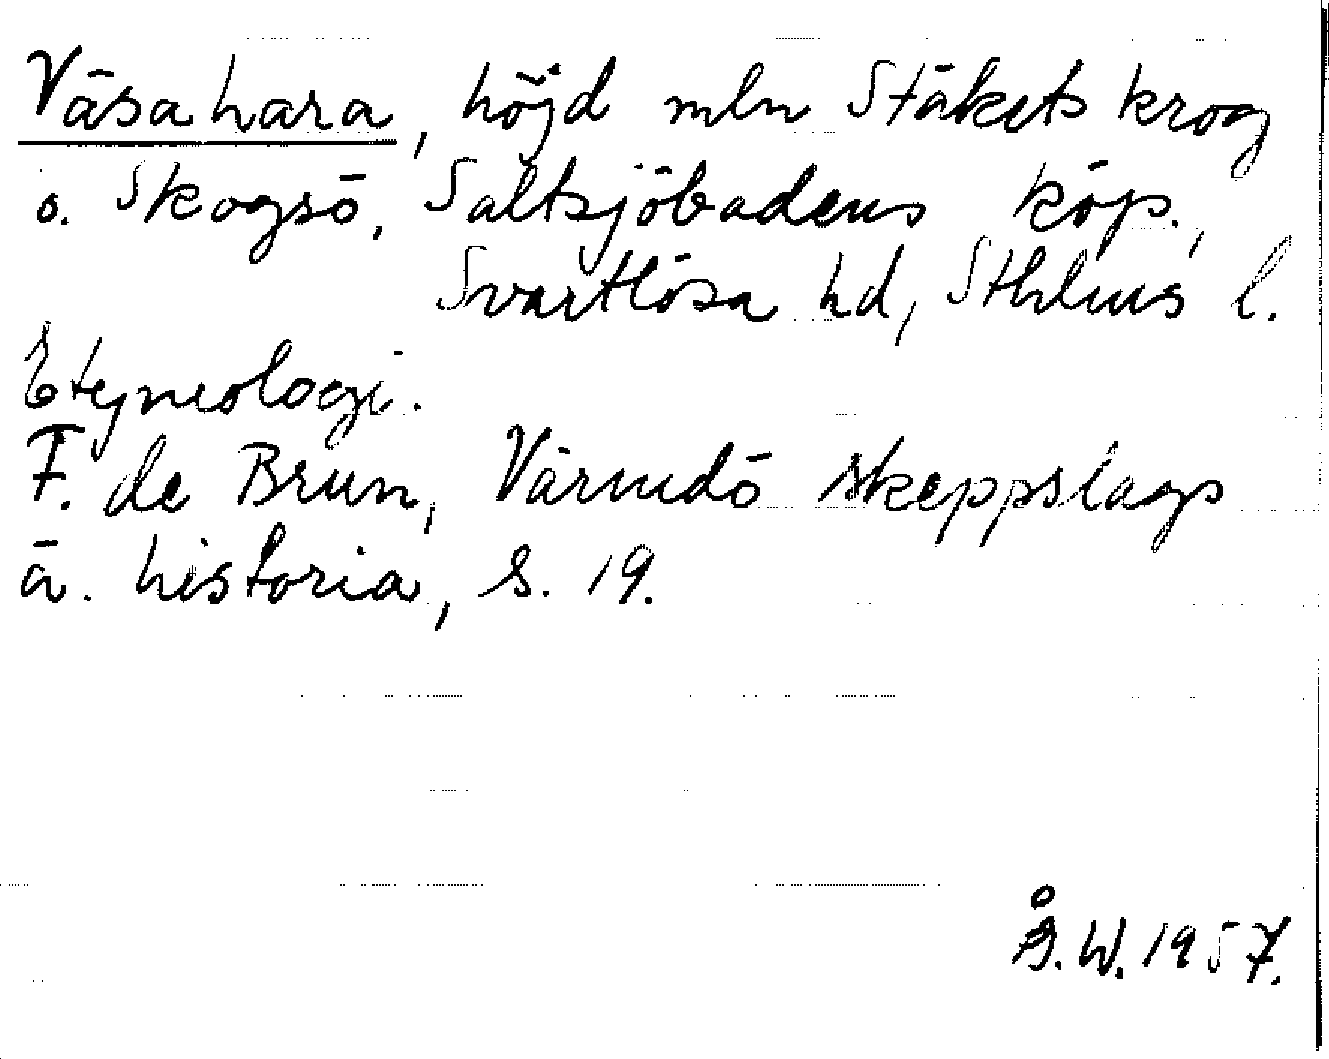 Väsahara, höjd mln Stäkets krog
o. Skogsö, Saltsjöbadens köp.,
Svartlösa hd, Sthlms l.
Etymologi.
F. de Brun, Värmdö skeppslags
ä. historia, s. 19.
Å.W. 1957.